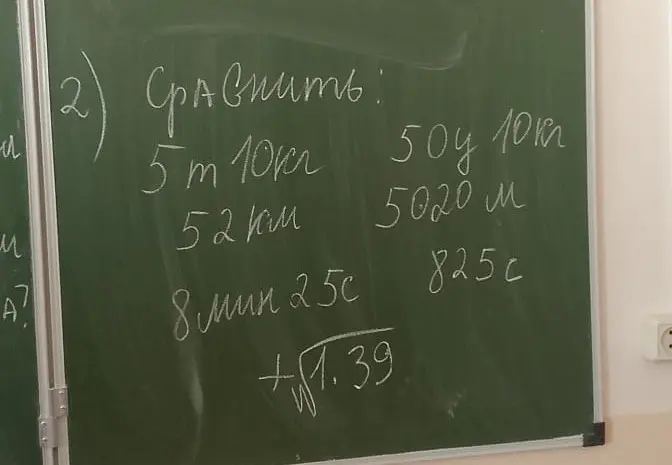 2) Сравнить:
5т 10кг 50ц 10кг
52км 5020 м
8мин 25с 825с
+√1.39
м
м
А?